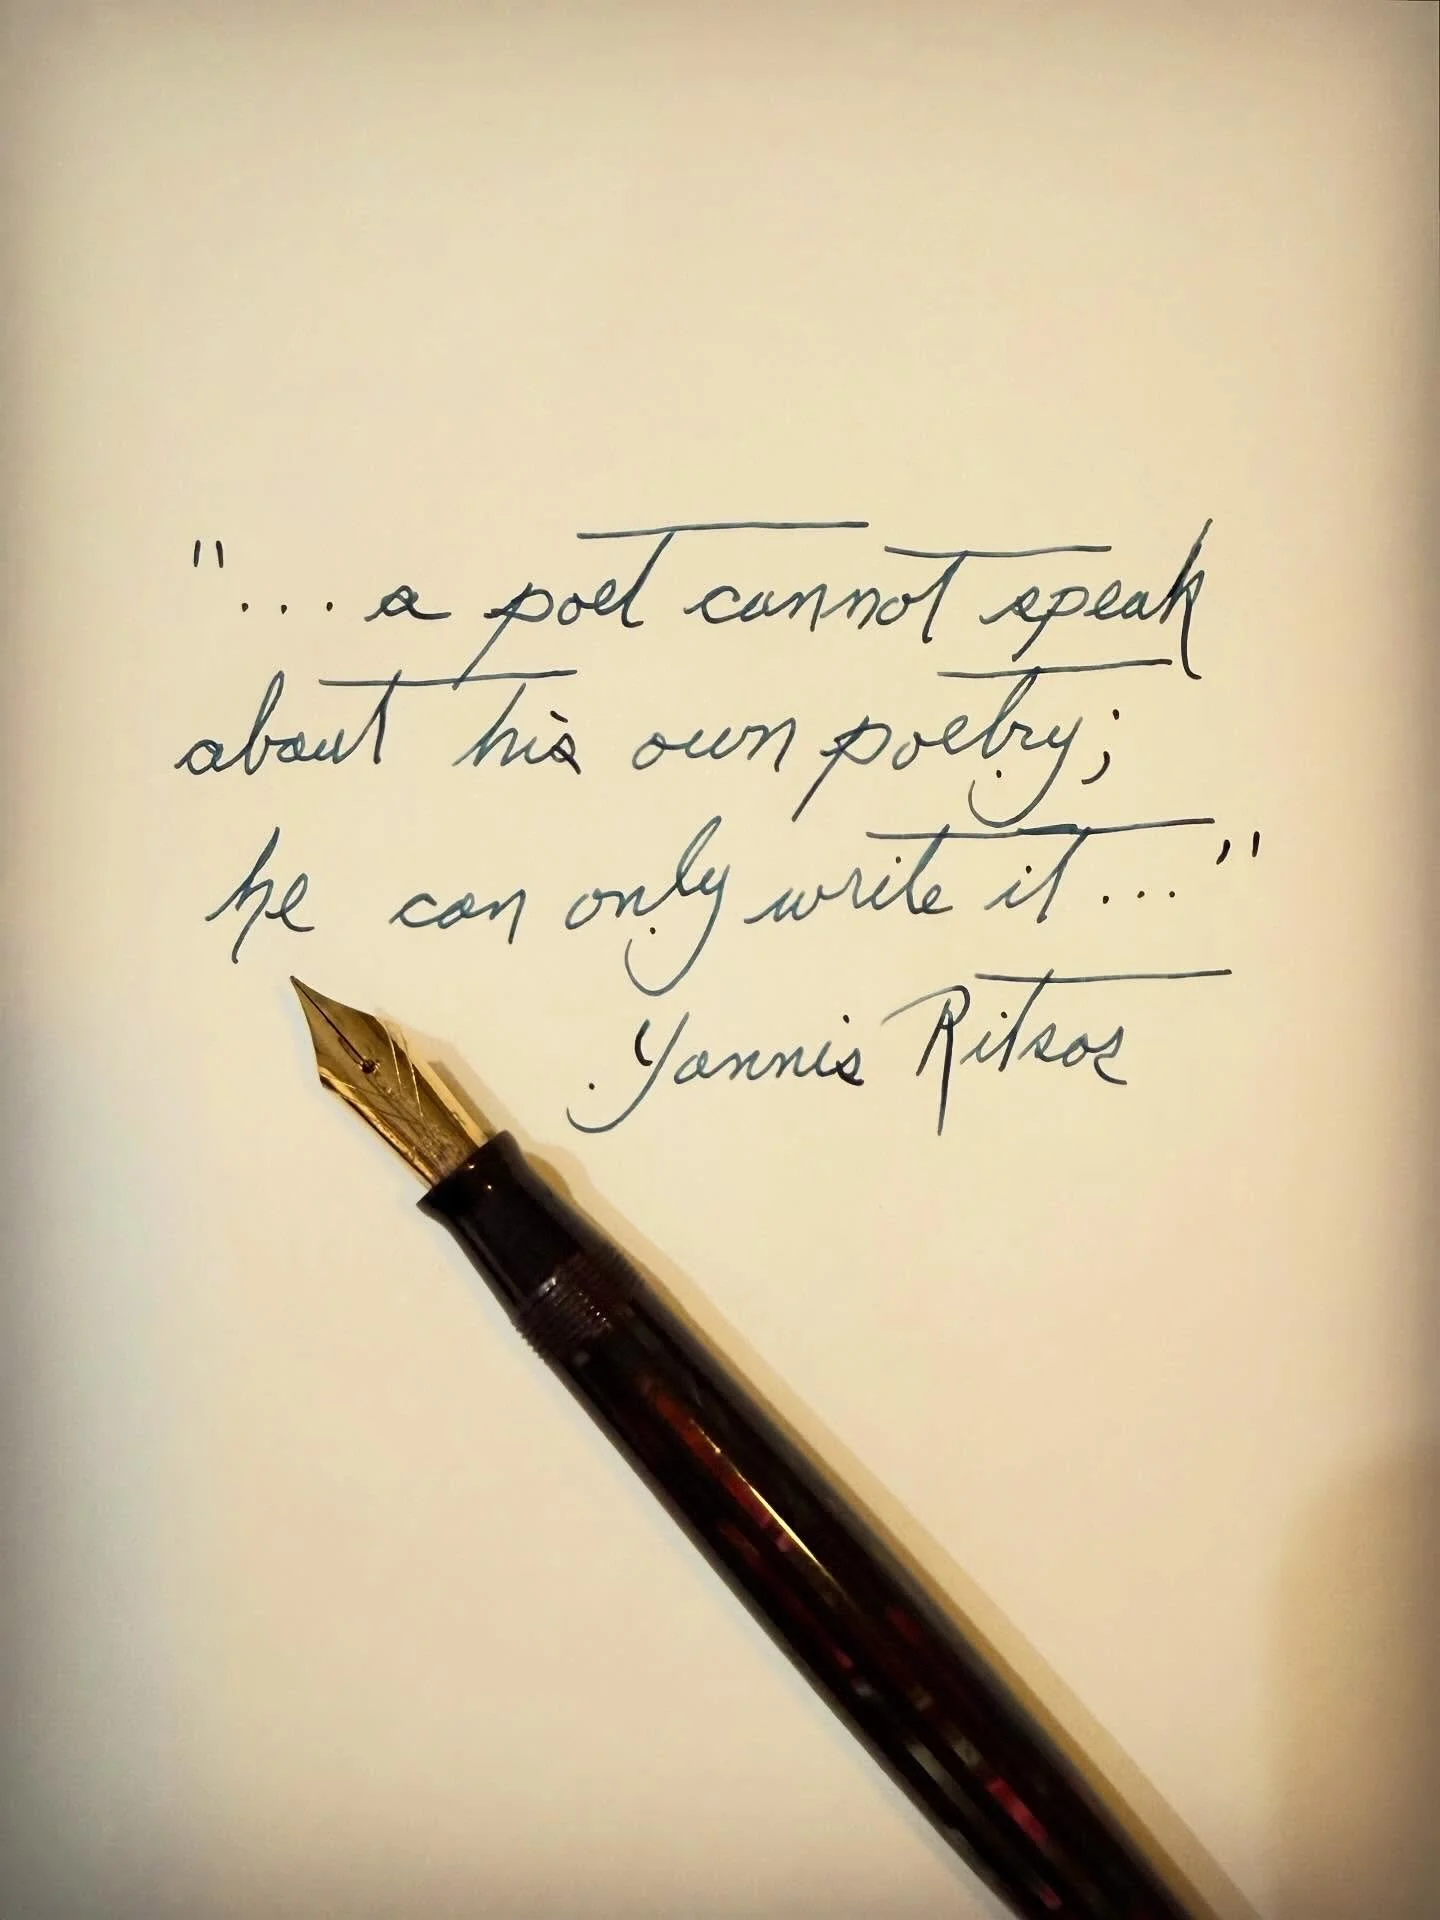 "... a poet cannot speak
about his own poetry;
he can only write it..."
Yannis Ritsos